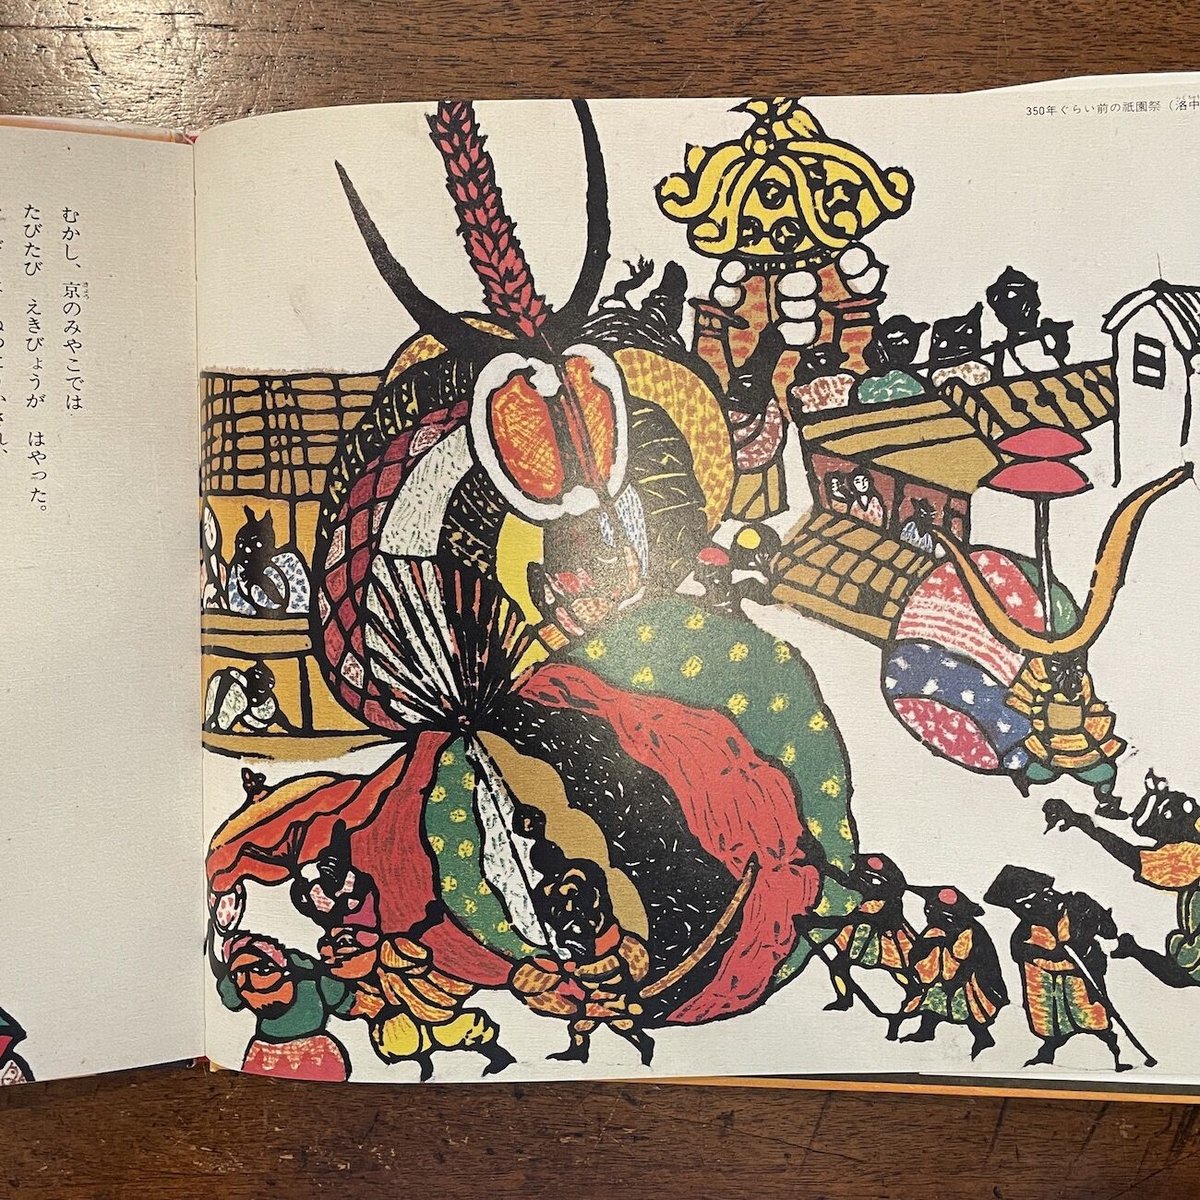 350年ぐらい前の祇園祭（洛中
むかし、京のみやこでは
たびたび えきびょうが はやった。